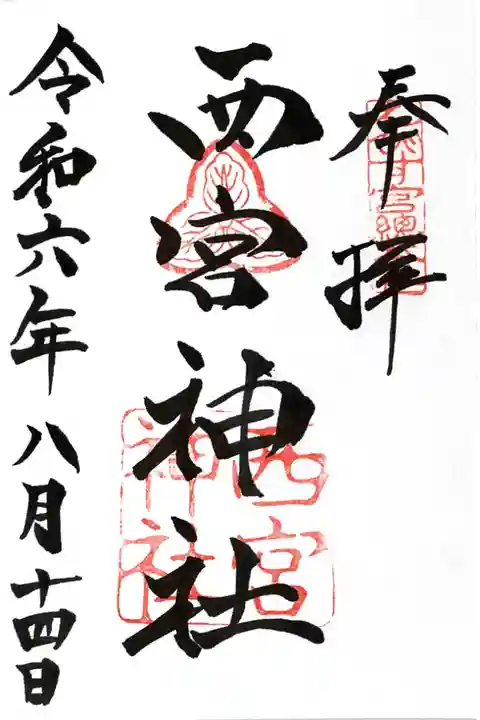 奉拝
西宮神社
令和六年八月十四日
西宮
神社